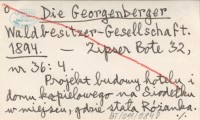 Die Georgenberger
Waldbesitzer-Gesellschaft.
1894. — Zipser Bote 32,
nr 36: 4.
Projekt budowy hotelu i
domu kąpielowego na Siodełku
w miejscu, gdzie stała Rózianka.